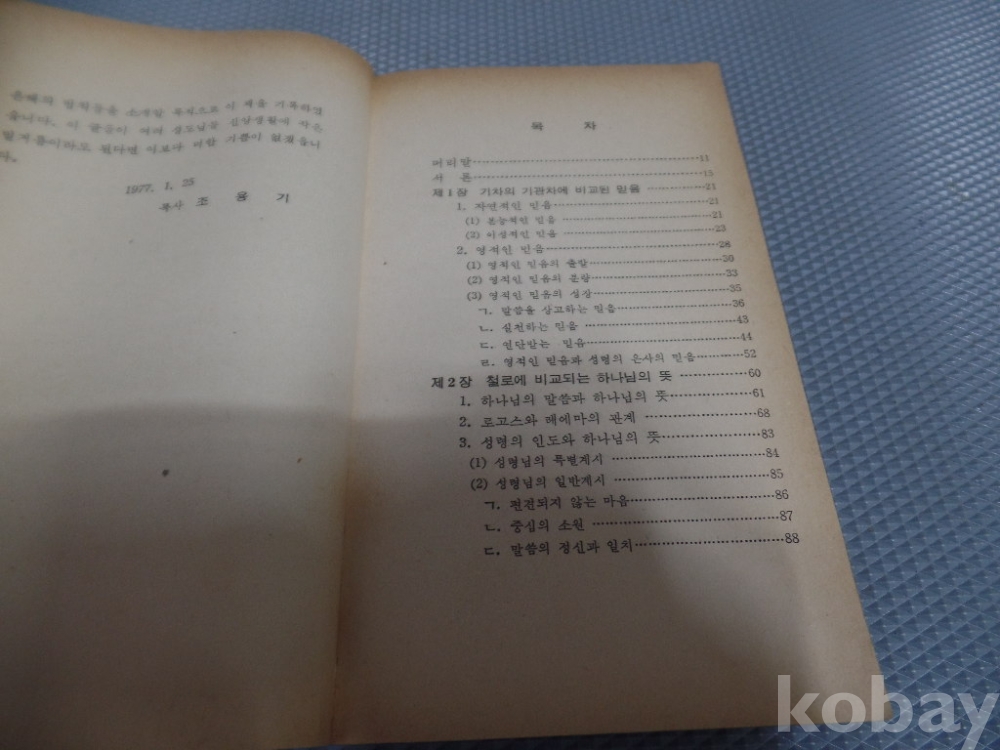 은혜의 말씀들을 소개할 목적으로 이 책을 기록하였
습니다. 이 글들이 여러 성도님들 신앙생활에 작은
말거름이라도 된다면 이보다 더한 기쁨이 없겠습니
다.
1977. 1. 25
목사 조 용 기
목 차
머리말 11
서 론 15
제1장 기차의 기관차에 비교된 믿음 21
1. 자연적인 믿음 21
(1) 본능적인 믿음 21
(2) 이성적인 믿음 23
2. 영적인 믿음 28
(1) 영적인 믿음의 출발 30
(2) 영적인 믿음의 분량 33
(3) 영적인 믿음의 성장 35
ㄱ. 말씀을 상고하는 믿음 36
ㄴ. 실천하는 믿음 43
ㄷ. 연단받는 믿음 44
ㄹ. 영적인 믿음과 성령의 은사의 믿음 52
제2장 철로에 비교되는 하나님의 뜻 60
1. 하나님의 말씀과 하나님의 뜻 61
2. 로고스와 레에마의 관계 68
3. 성령의 인도와 하나님의 뜻 83
(1) 성령님의 특별계시 84
(2) 성령님의 일반계시 85
ㄱ. 편견되지 않는 마음 86
ㄴ. 중심의 소원 87
ㄷ. 말씀의 정신과 일치 88
kobay